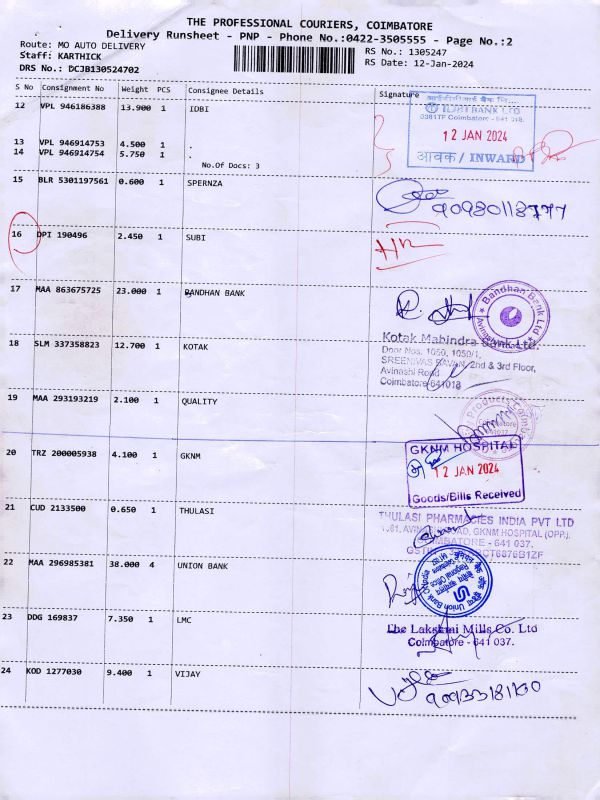 THE PROFESSIONAL COURIERS, COIMBATORE
Delivery Runsheet - PNP - Phone No.:0422-3505555 - Page No.:2
Route: MO AUTO DELIVERY
RS No.: 1305247
Staff: KARTHICK
RS Date: 12-Jan-2024
DRS No.: DCJB130524702
S No Consignment No Weight PCS Consignee Details Signature
12 VPL 946186388 13.900 1 IDBI
IDBI BANK LTD
Coimbatore - 641 018.
12 JAN 2024
आवक / INWARD
13 VPL 946914753 4.500 1 .
14 VPL 946914754 5.750 1 .
No.Of Docs: 3
15 BLR 5301197561 0.600 1 SPERNZA
16 DPI 190496 2.450 1 SUBI
17 MAA 863675725 23.000 1 BANDHAN BANK
Bandhan Bank Ltd
18 SLM 337358823 12.700 1 KOTAK
Kotak Mahindra Bank Ltd.
Door Nos. 1050, 1050/1,
SREENIVAS BAVAN, 2nd & 3rd Floor,
Avinashi Road
Coimbatore-641018
19 MAA 293193219 2.100 1 QUALITY
20 TRZ 200005938 4.100 1 GKNM
GKNM HOSPITAL
12 JAN 2024
Goods/Bills Received
21 CUD 2133500 0.650 1 THULASI
THULASI PHARMACIES INDIA PVT LTD
GKNM HOSPITAL (OPP.),
COIMBATORE - 641 037.
22 MAA 296985381 38.000 4 UNION BANK
23 DDG 169837 7.350 1 LMC
The Lakshmi Mills Co. Ltd
Coimbatore - 641 037.
24 KOD 1277030 9.400 1 VIJAY